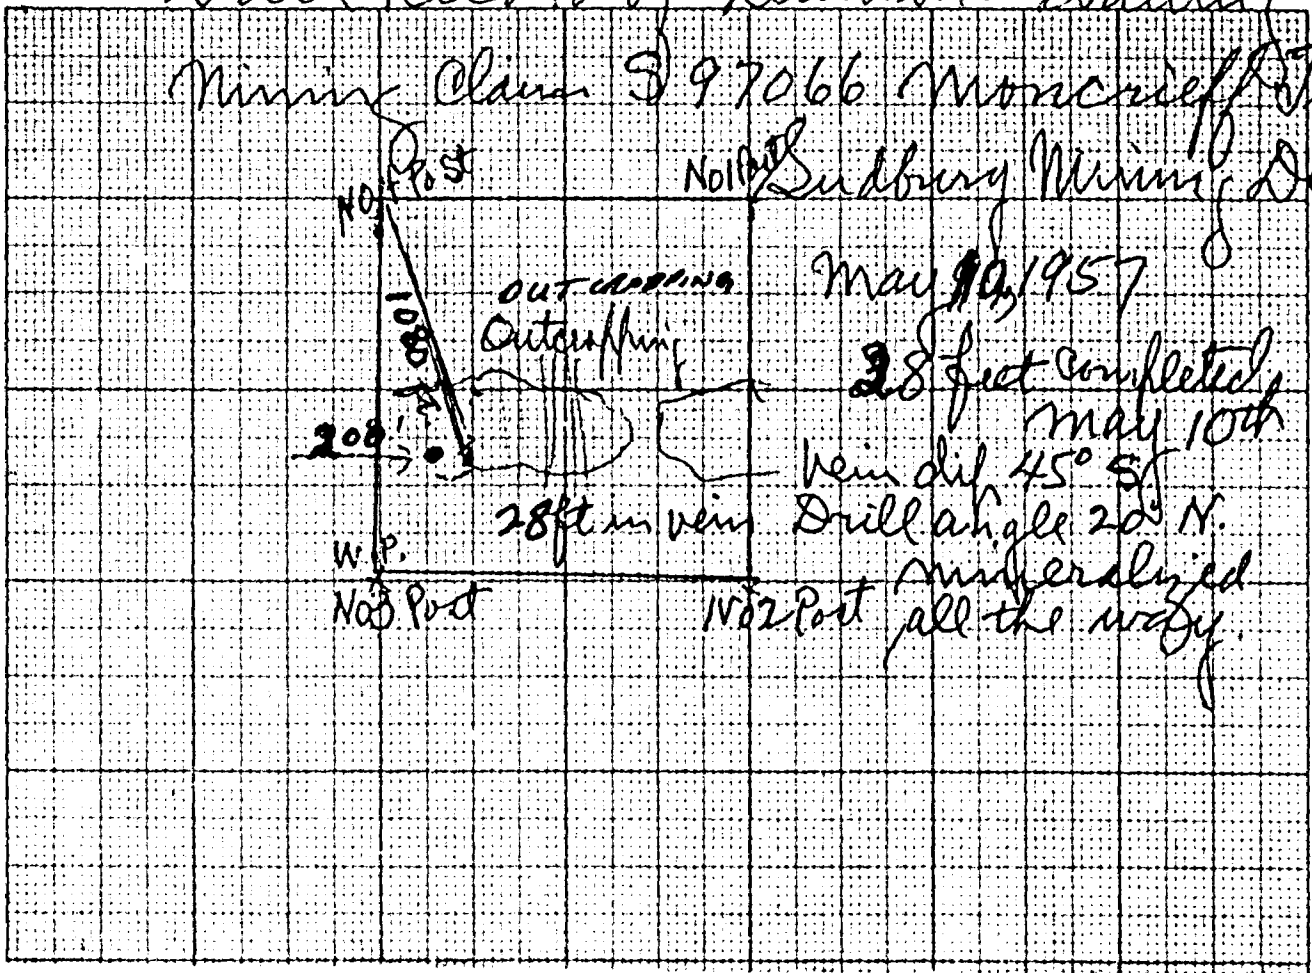 Mining Claim S 97066 Moncrieff
No1 Post Sudbury Mining D
Post
No
May 10, 1957
OUTCROPPING
Outcropping
1080 ft.
28 feet completed
May 10th
200'
Vein dip 45° S
28ft in vein Drill angle 20° N.
W.P.
mineralized
No3 Post No2 Post all the way.